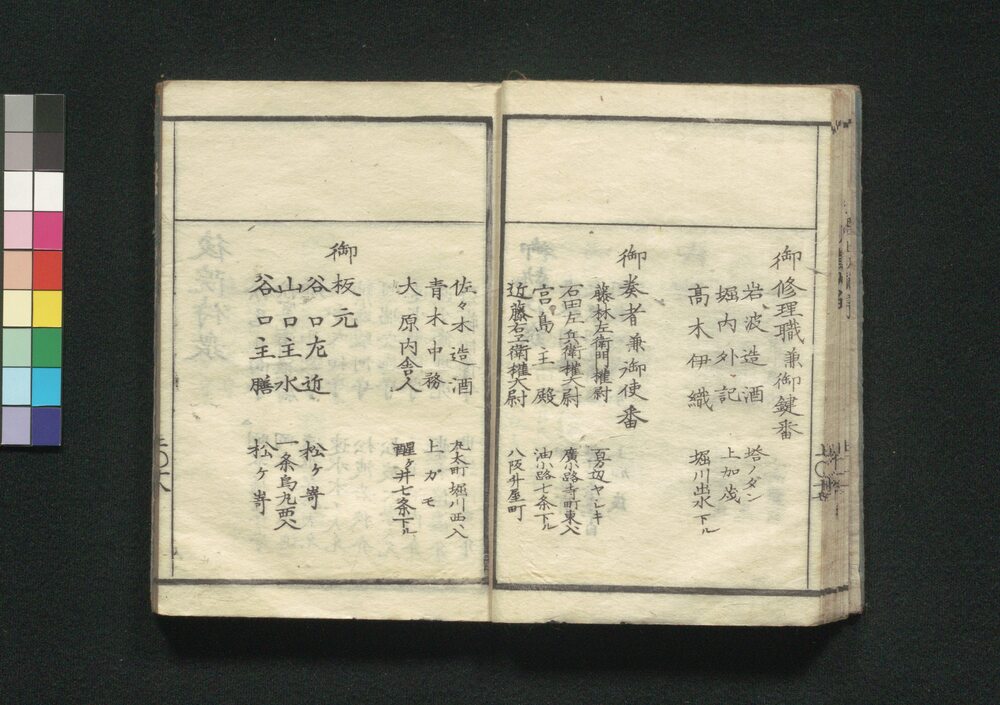 御修理職兼御鍵番
岩波造酒 塔ノダン
堀内外記 上加茂
高木伊織 堀川出水下ル
御奏者兼御使番
藤林左衛門権尉 百万辺ヤシキ
石田左兵衛権大尉 廣小路寺町東入
宮島主殿 油小路七条下ル
近藤右兵衛権大尉 八阪升屋町
佐々木造酒 丸太町堀川西入
青木中務 上ガモ
大原内舎人 醒ケ井七条下ル
御板元
谷口左近 松ケ嵜
山口主水 一条烏丸西入
谷口主膳 松ケ嵜